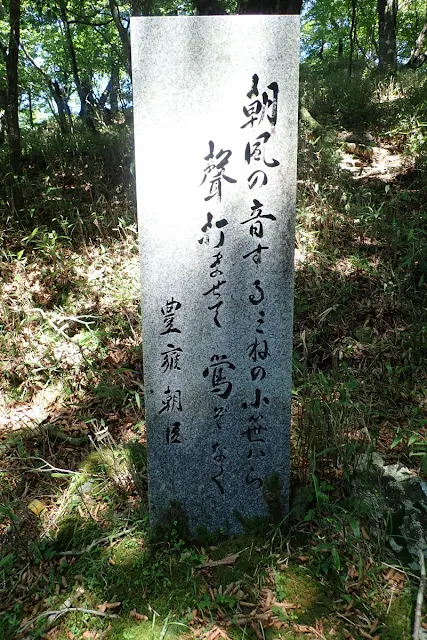 朝風の音するみねの小笹ハら
聲打ませて鶯ぞなく
豊寂朝臣